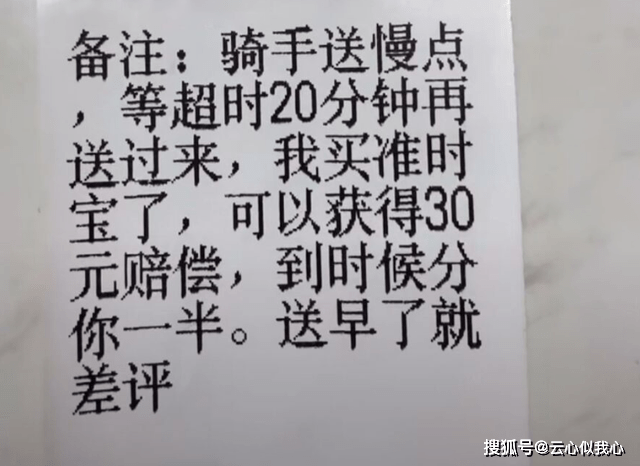 备注：骑手送慢点
，等超时20分钟再
送过来，我买准时
宝了，可以获得30
元赔偿，到时候分
你一半。送早了就
差评
搜狐号@云心似我心